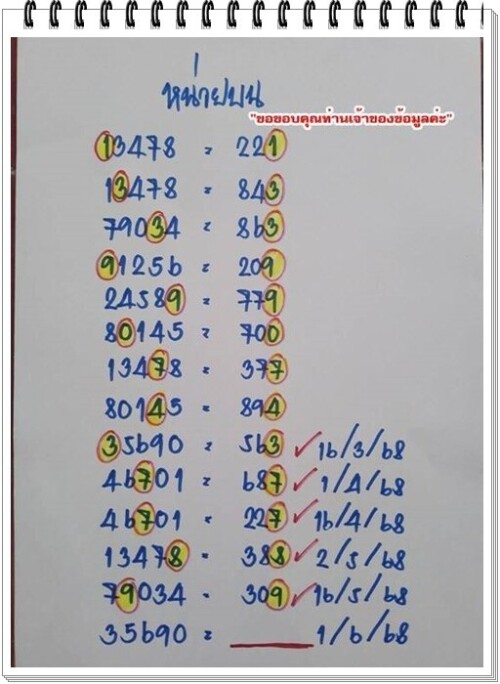 หน่วยบน
"ขอขอบคุณท่านเจ้าของข้อมูลค่ะ"
13478 = 221
13478 = 843
79034 = 863
91256 = 209
24589 = 779
80145 = 700
13478 = 377
80145 = 894
35690 = 563 ✓ 16/3/68
46701 = 687 ✓ 1/4/68
46701 = 227 ✓ 16/4/68
13478 = 388 ✓ 2/5/68
79034 = 309 ✓ 16/5/68
35690 = ____ 1/6/68